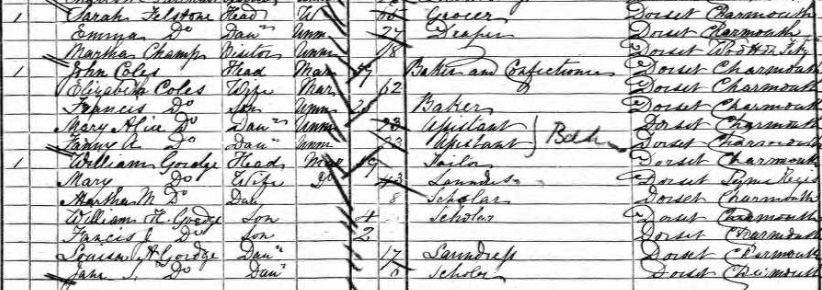 1 Sarah Felstone Head W 60 Grocer Dorset Charmouth
Emma Do Daur Unm 27 Draper Dorset Charmouth
Martha Champ Visitor Unm 18 Dorset
1 John Coles Head Mar 59 Baker and Confectioner Dorset Charmouth
Elizabeth Coles Wife Mar 62 Dorset Charmouth
Francis Do Son Unm 25 Baker Dorset Charmouth
Mary Alice Do Daur Unm 23 Assistant Dorset Charmouth
Fanny A Do Daur Unm Assistant Dorset Charmouth
1 William Gordge Head Mar 49 Tailor Dorset Charmouth
Mary Do Wife Do 43 Laundress Dorset Lyme Regis
Martha M Do Dau 8 Scholar Dorset Charmouth
William H. Gordge Son 4 Scholar Dorset Charmouth
Francis J Do Son 2 Dorset Charmouth
Louisa A Gordge Daur 17 Laundress Dorset Charmouth
Jane Do Daur Scholar Dorset Charmouth